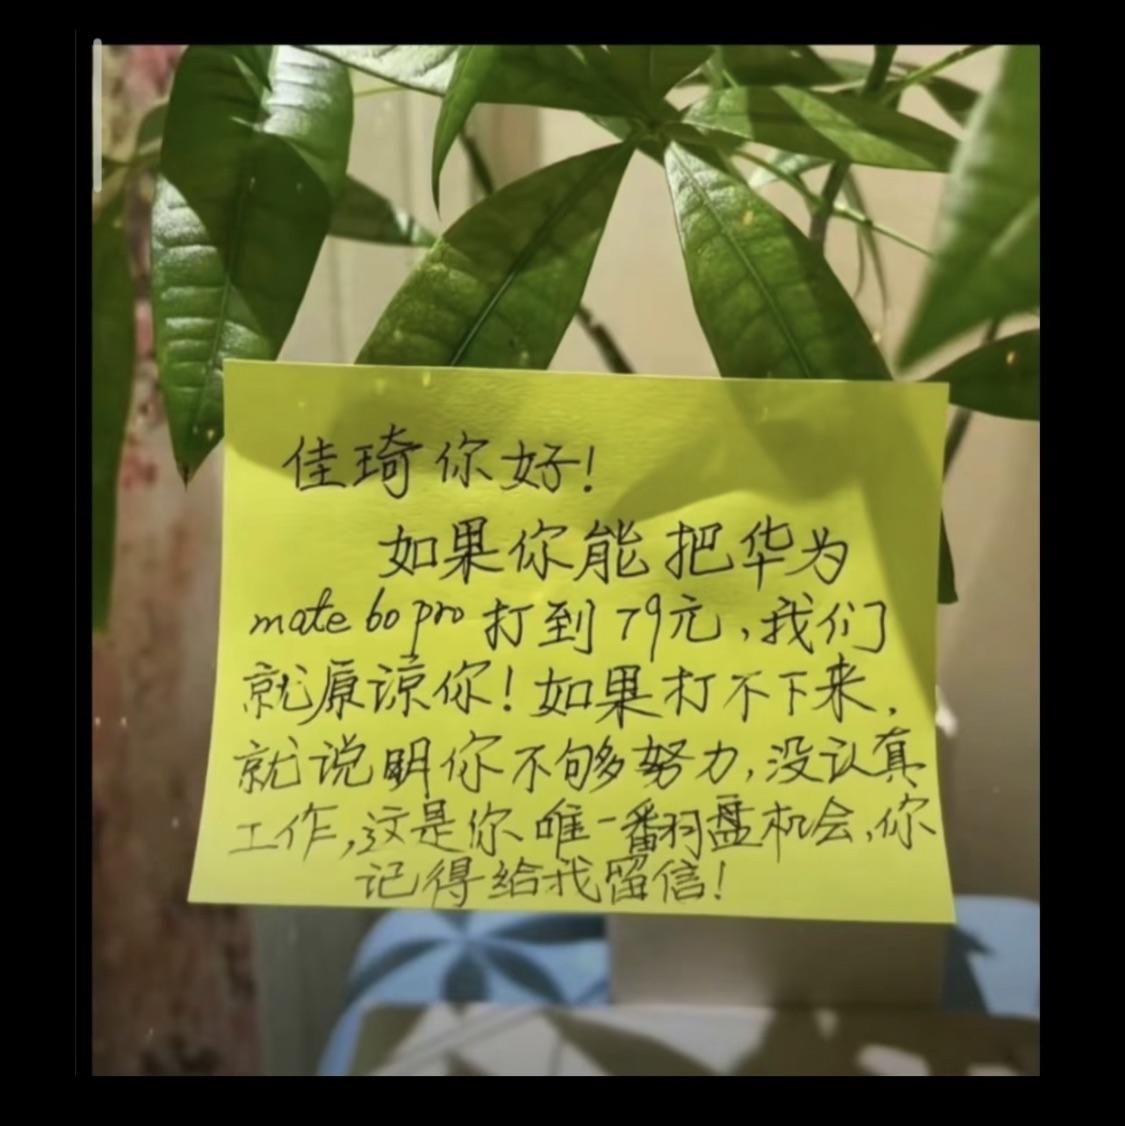 佳琦你好!
如果你能把华为
mate 60 pro 打到 79元,我们
就原谅你!如果打不下来,
就说明你不够努力,没认真
工作,这是你唯一翻盘机会,你
记得给我留信!